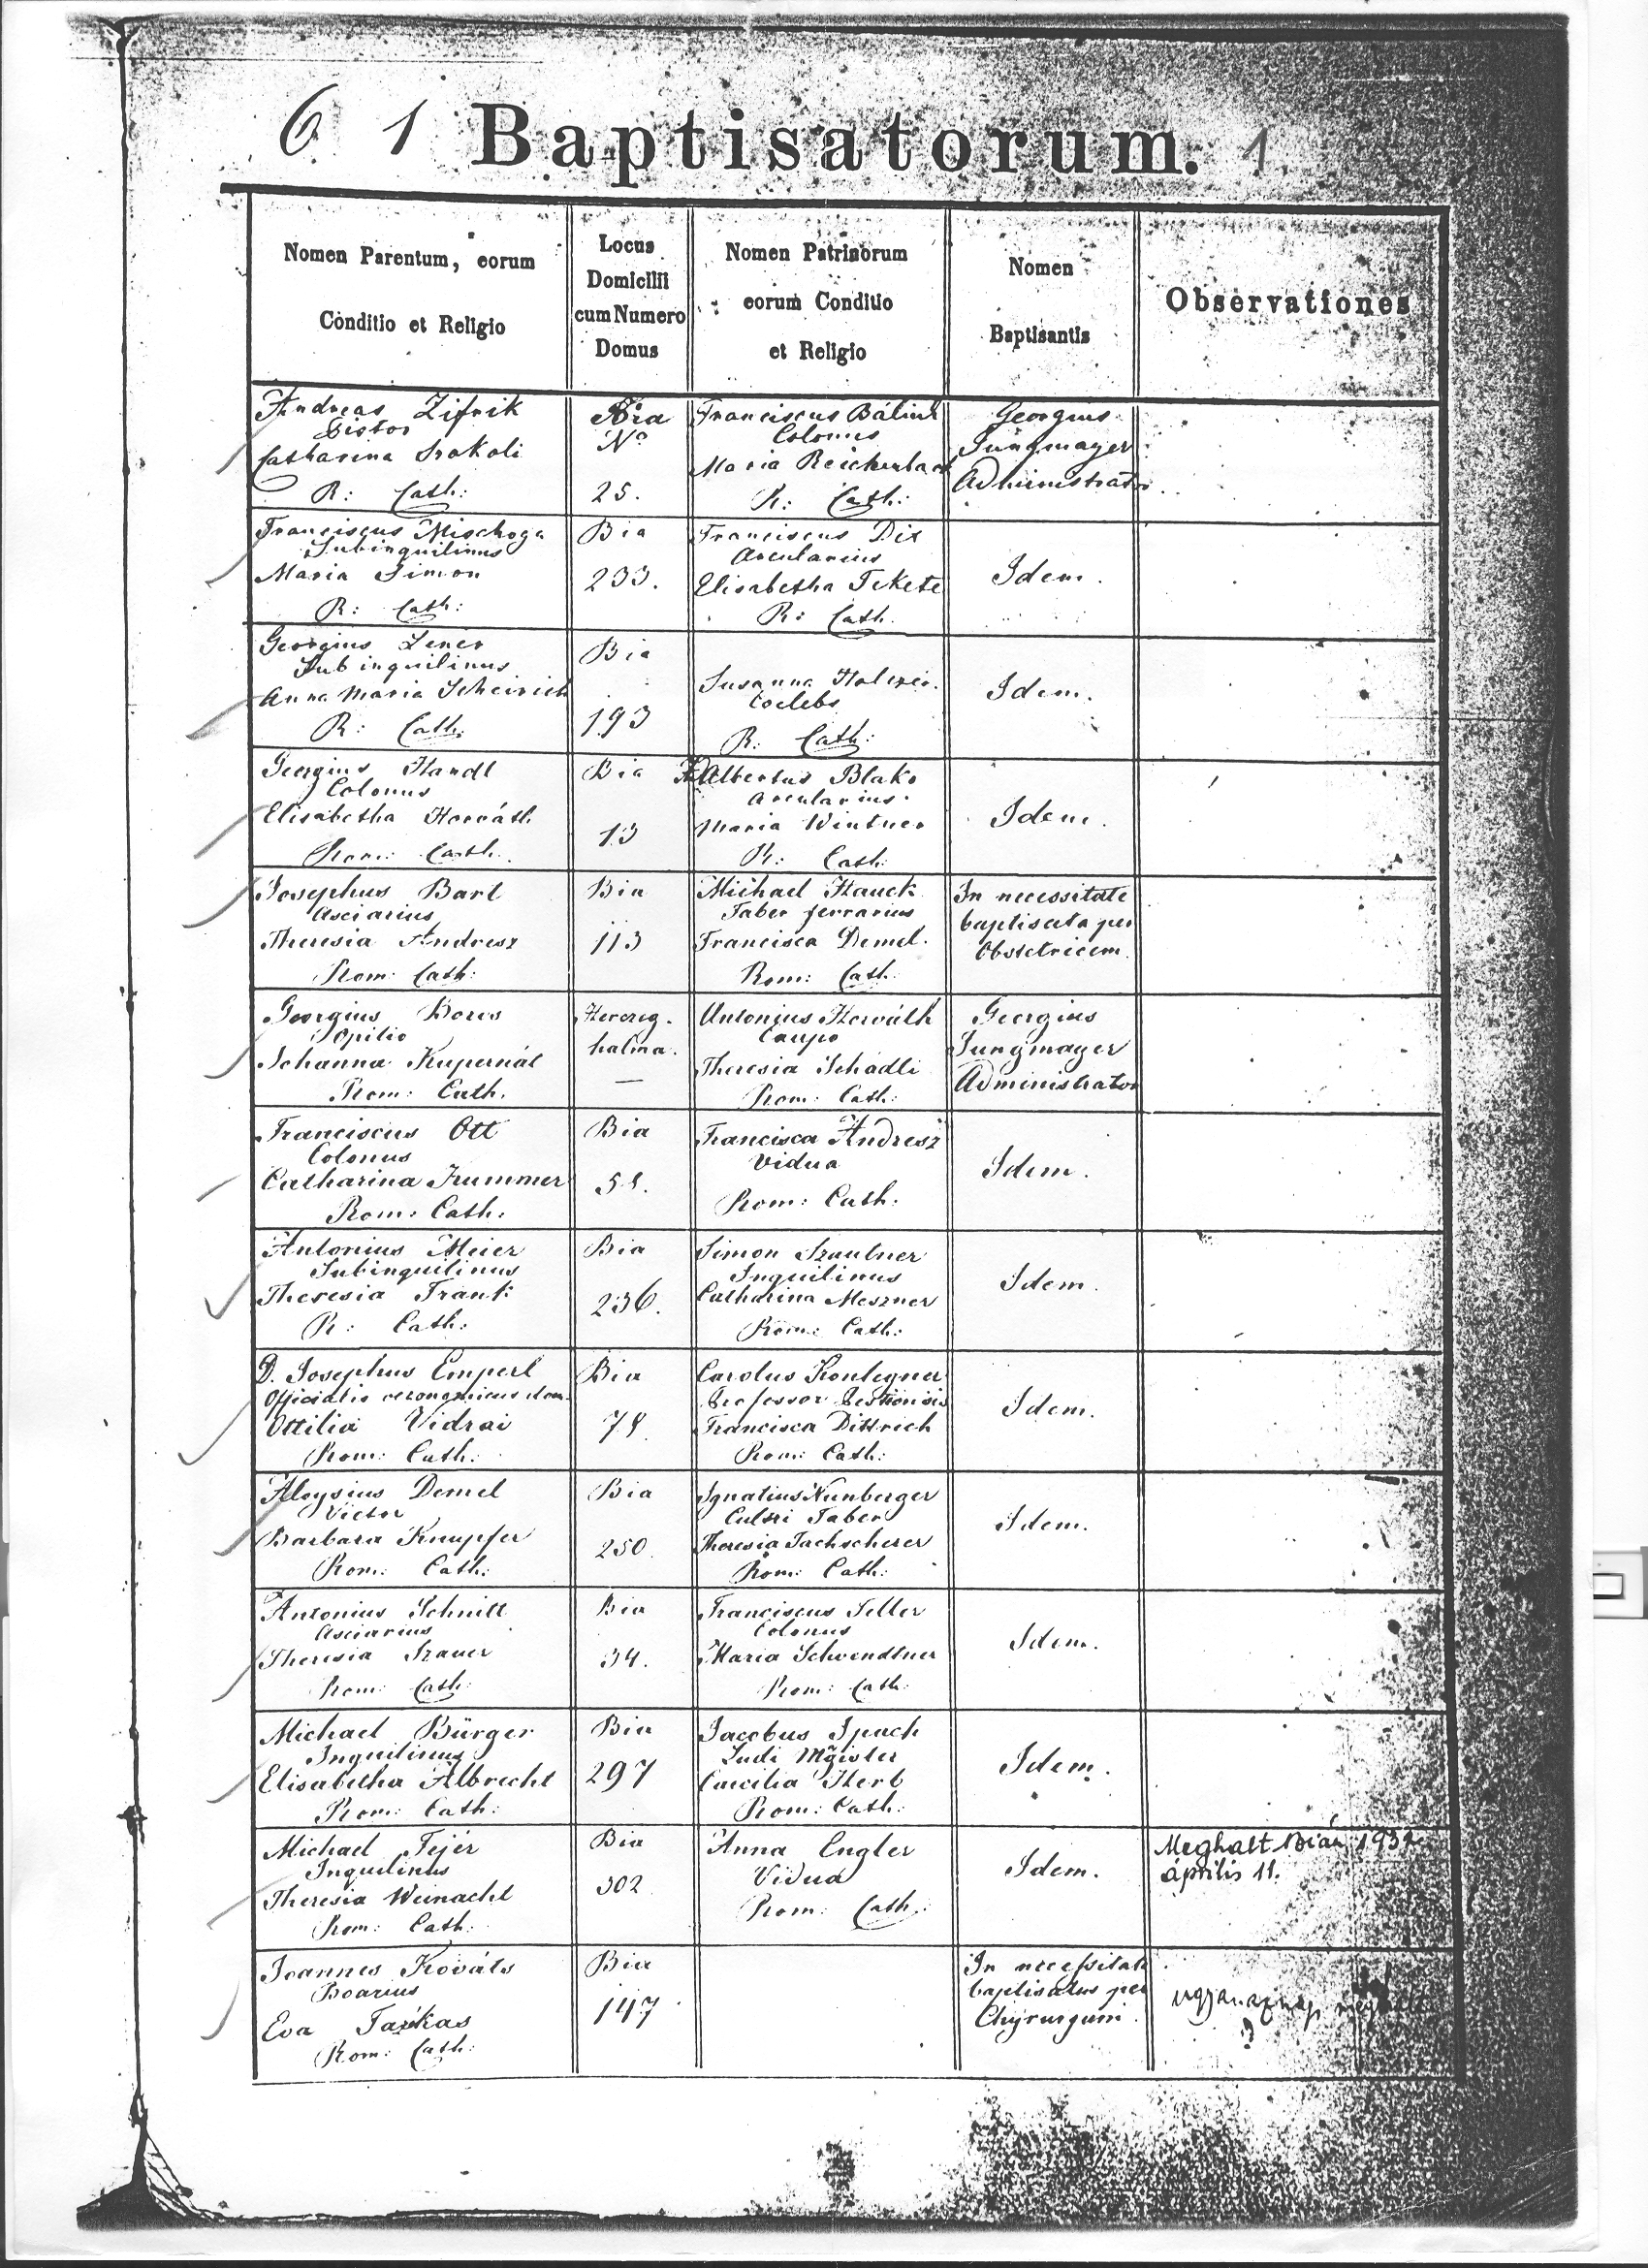 6 1 Baptisatorum. 1
Nomen Parentum, eorum
Conditio et Religio
Locus
Domicilii
cum Numero
Domus
Nomen Patrinorum
eorum Conditio
et Religio
Nomen
Baptisantis
Observationes
Andreas Zifrik
Pistor
Catharina Srokoli
R: Cath:
Bia
No
25.
Franciscus Bálint
Colonus
Maria Reichenbach
R: Cath:
Georgius
Jungmayer
Administrator
Franciscus Mischoga
Subinquilinus
Maria Simon
R: Cath:
Bia
233.
Franciscus Dix
Arcularius
Elisabetha Fekete
R: Cath.
Idem.
Georgius Zener
Subinquilinus
Anna Maria Scheirich
R: Cath:
Bia
193
Susanna Holzer.
Coelebs
R: Cath:
Idem.
Georgius Handl
Colonus
Elisabetha Horváth
Rom: Cath.
Bia
13
Albertus Blako
Arcularius.
Maria Wintner
R: Cath:
Idem.
Josephus Bart
Asciarius
Theresia Andresz
Rom: Cath:
Bia
113
Michael Hauck
Faber ferrarius
Francisca Demel.
Rom: Cath.
In necessitate
baptisata per
Obstetricem.
Georgius Boros
Opilio
Johanna Kupernát
Rom: Cath.
Herczeg-
halma.
—
Antonius Horváth
Caupo
Theresia Schädli
Rom: Cath:
Georgius
Jungmayer
Administrator
Franciscus Ott
Colonus
Catharina Krummer
Rom: Cath:
Bia
Francisca Andresz
Vidua
Rom: Cath.
Idem.
Antonius Meier
Subinquilinus
Theresia Frank
R: Cath:
Bia
236.
Simon Szautner
Inquilinus
Catharina Meszner
Rom: Cath:
Idem.
D. Josephus Emperl
Officialis
Ottilia Vidrai
Rom: Cath:
Bia
Carolus
Professor Pesthiensis
Francisca Dittrich
Rom: Cath:
Idem.
Aloysius Demel
Victor
Barbara Knupfer
Rom: Cath:
Bia
250.
Ignatius Nunberger
Cultri Faber
Theresia Tachscherer
Rom: Cath:
Idem.
Antonius Schnitt
Asciarius
Theresia Szauer
Rom: Cath:
Bia
34.
Franciscus Seller
Colonus
Maria Schwendtner
Rom: Cath:
Idem.
Michael Bürger
Inquilinus
Elisabetha Albrecht
Rom: Cath:
Bia
297
Jacobus Spach
Ludi Mgister
Caecilia Herb
Rom: Cath:
Idem.
Michael Fejér
Inquilinus
Theresia Weinacht
Rom: Cath:
Bia
302
Anna Engler
Vidua
Rom: Cath:
Idem.
Meghalt Bián, 193
április 11.
Joannes Kováts
Boarius
Eva Farkas
Rom: Cath:
Bia
147
In necessitate
baptisatus per
Chyrurgum.
ugyanaznap meghalt